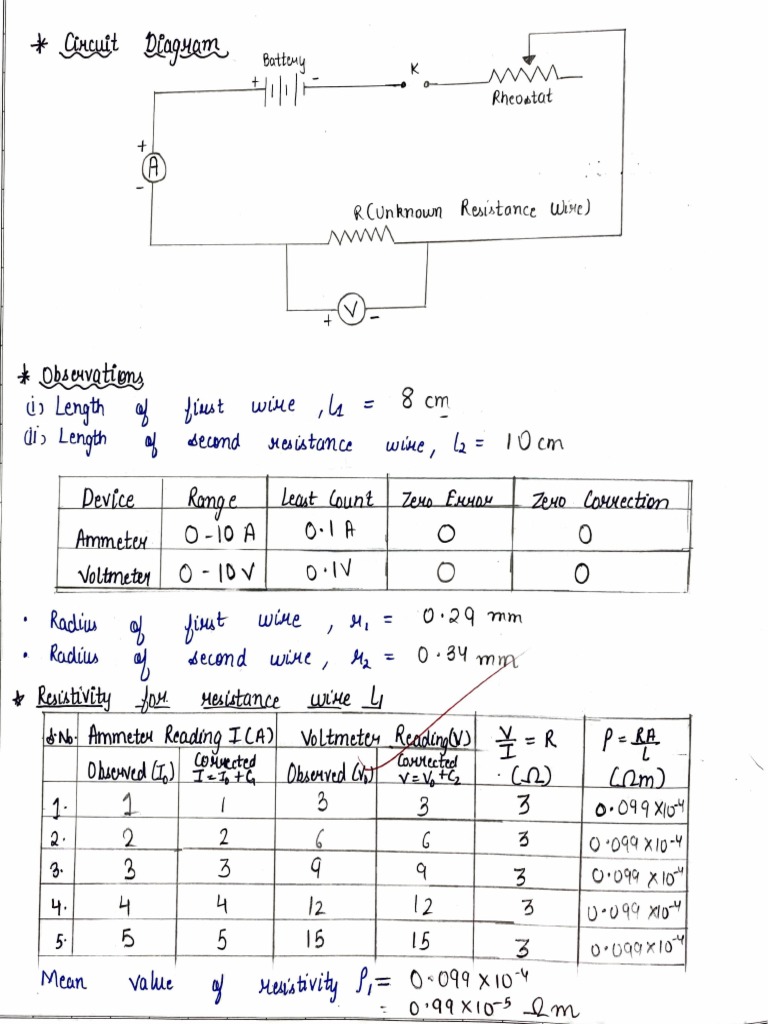 * Circuit Diagram
Battery
+ -
K
Rheostat
+
A
-
R (Unknown Resistance Wire)
+ V -
* Observations
(i) Length of first wire, l1 = 8 cm
(ii) Length of second resistance wire, l2 = 10 cm
Device Range Least Count Zero Error Zero Correction
Ammeter 0-10 A 0.1 A 0 0
Voltmeter 0-10 V 0.1V 0 0
• Radius of first wire, r1 = 0.29 mm
• Radius of second wire, r2 = 0.34 mm
* Resistivity for resistance wire L1
S.No. Ammeter Reading I(A) Voltmeter Reading(V) V/I = R (Ω) ρ = RA/L (Ωm)
Observed (I₀) Corrected I = I₀ + C₁ Observed (V₀) Corrected V = V₀ + C₂
1. 1 1 3 3 3 0.099 X10⁻⁴
2. 2 2 6 6 3 0.099 X10⁻⁴
3. 3 3 9 9 3 0.099 X10⁻⁴
4. 4 4 12 12 3 0.099 X10⁻⁴
5. 5 5 15 15 3 0.099 X10⁻⁴
Mean value of resistivity ρ1 = 0.099 X10⁻⁴
= 0.99 X10⁻⁵ Ωm